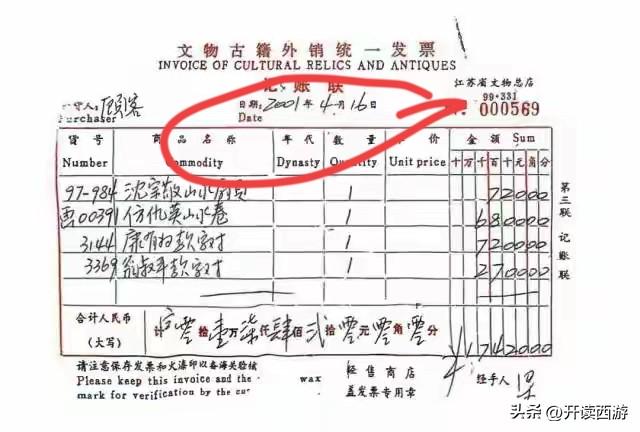 文物古籍外销统一发票
INVOICE OF CULTURAL RELICS AND ANTIQUES
记账联
江苏省文物总店
99·331
购货人:顾客 日期:2001年4月16 000569
Purchaser Date
货号 商品名称 年代 数量 单价 金额 Sum
Number Commodity Dynasty Quantity Unit price 十万千百十元角分
97-984 沈宗敬山水扇页 1 72000
00391 仿仇英山水卷 1 680000
3144 康有为款字对 1 720000
3369 翁叔平款字对 1 270000
第三联 记账联
合计人民币 计 零拾壹万柒仟肆佰贰拾零元零角零分 ¥1742000
(大写)
请注意保存发票和火漆印以备海关验核 经售商店 经手人
Please keep this invoice and the wax 盖发票专用章
mark for verification by the cus
头条 @开读西游